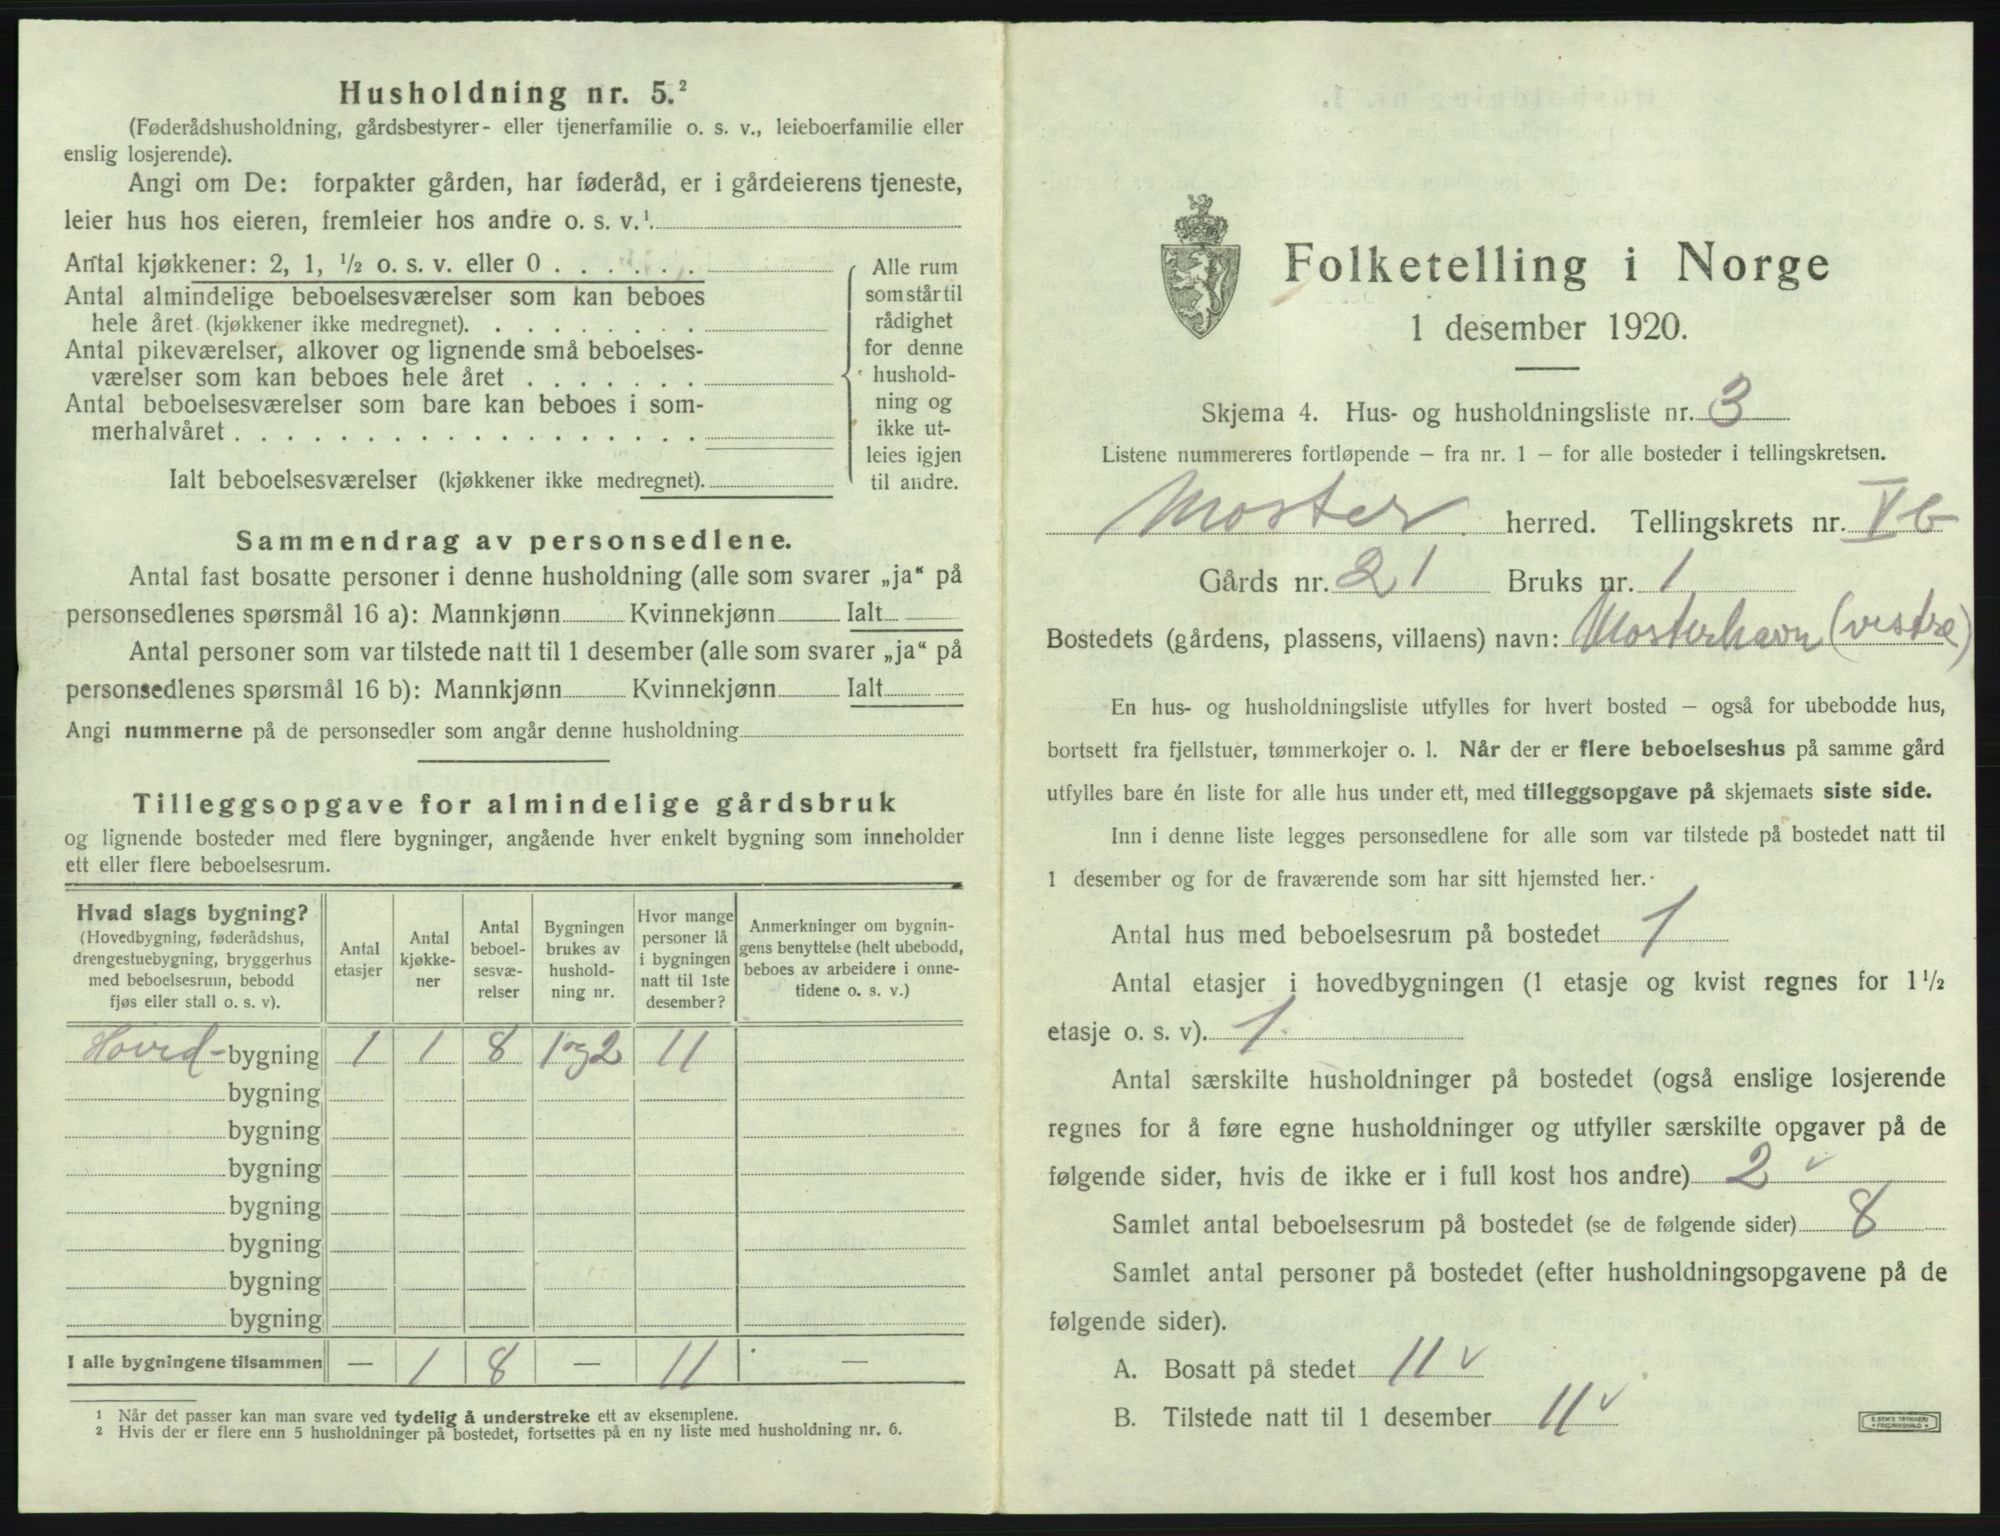 Husholdning nr. 5.²
(Føderådshusholdning, gårdsbestyrer- eller tjenerfamilie o. s. v., leieboerfamilie eller
enslig losjerende).
Angi om De: forpakter gården, har føderåd, er i gårdeierens tjeneste,
leier hus hos eieren, fremleier hos andre o. s. v.¹.
Antal kjøkkener: 2, 1, ½ o. s. v. eller 0 . . . . . .
Antal almindelige beboelsesværelser som kan beboes
hele året (kjøkkener ikke medregnet). . . . . . . . .
Antal pikeværelser, alkover og lignende små beboelses-
værelser som kan beboes hele året . . . . . . .
Antal beboelsesværelser som bare kan beboes i som-
merhalvåret . . . . . . . . . . . . . . . . . .
Ialt beboelsesværelser (kjøkkener ikke medregnet).
Alle rum
som står til
rådighet
for denne
hushold-
ning og
ikke ut-
leies igjen
til andre.
Sammendrag av personsedlene.
Antal fast bosatte personer i denne husholdning (alle som svarer „ja“ på
personsedlenes spørsmål 16 a): Mannkjønn Kvinnekjønn Ialt
Antal personer som var tilstede natt til 1 desember (alle som svarer „ja“ på
personsedlenes spørsmål 16 b): Mannkjønn Kvinnekjønn Ialt
Angi nummerne på de personsedler som angår denne husholdning
Tilleggsopgave for almindelige gårdsbruk
og lignende bosteder med flere bygninger, angående hver enkelt bygning som inneholder
ett eller flere beboelsesrum.
Hvad slags bygning?
(Hovedbygning, føderådshus,
drengestuebygning, bryggerhus
med beboelsesrum, bebodd
fjøs eller stall o. s. v).
Antal
etasjer
Antal
kjøkke-
ner
Antal
beboel-
sesvæ-
relser
Bygningen
brukes av
hushold-
ning nr.
Hvor mange
personer lå
i bygningen
natt til 1ste
desember?
Anmerkninger om bygnin-
gens benyttelse (helt ubebodd,
beboes av arbeidere i onne-
tidene o. s. v.)
Hoved-bygning 1 1 8 1 og 2 11
bygning
bygning
bygning
bygning
bygning
bygning
bygning
I alle bygningene tilsammen — 1 8 — 11 —
¹ Når det passer kan man svare ved tydelig å understreke ett av eksemplene.
² Hvis der er flere enn 5 husholdninger på bostedet, fortsettes på en ny liste med husholdning nr. 6.
Folketelling i Norge
1 desember 1920.
Skjema 4. Hus- og husholdningsliste nr. 3
Listene nummereres fortløpende – fra nr. 1 – for alle bosteder i tellingskretsen.
Moster herred. Tellingskrets nr. V b
Gårds nr. 21 Bruks nr. 1
Bostedets (gårdens, plassens, villaens) navn: Mosterhavn (vestre)
En hus- og husholdningsliste utfylles for hvert bosted – også for ubebodde hus,
bortsett fra fjellstuer, tømmerkojer o. l. Når der er flere beboelseshus på samme gård
utfylles bare én liste for alle hus under ett, med tilleggsopgave på skjemaets siste side.
Inn i denne liste legges personsedlene for alle som var tilstede på bostedet natt til
1 desember og for de fraværende som har sitt hjemsted her.
Antal hus med beboelsesrum på bostedet 1
Antal etasjer i hovedbygningen (1 etasje og kvist regnes for 1½
etasje o. s. v). 1.
Antal særskilte husholdninger på bostedet (også enslige losjerende
regnes for å føre egne husholdninger og utfyller særskilte opgaver på de
følgende sider, hvis de ikke er i full kost hos andre) 2 v
Samlet antal beboelsesrum på bostedet (se de følgende sider) 8
Samlet antal personer på bostedet (efter husholdningsopgavene på de
følgende sider).
A. Bosatt på stedet 11 v
B. Tilstede natt til 1 desember 11 v
E. SEM'S TRYKKERI
FREDRIKSHALD